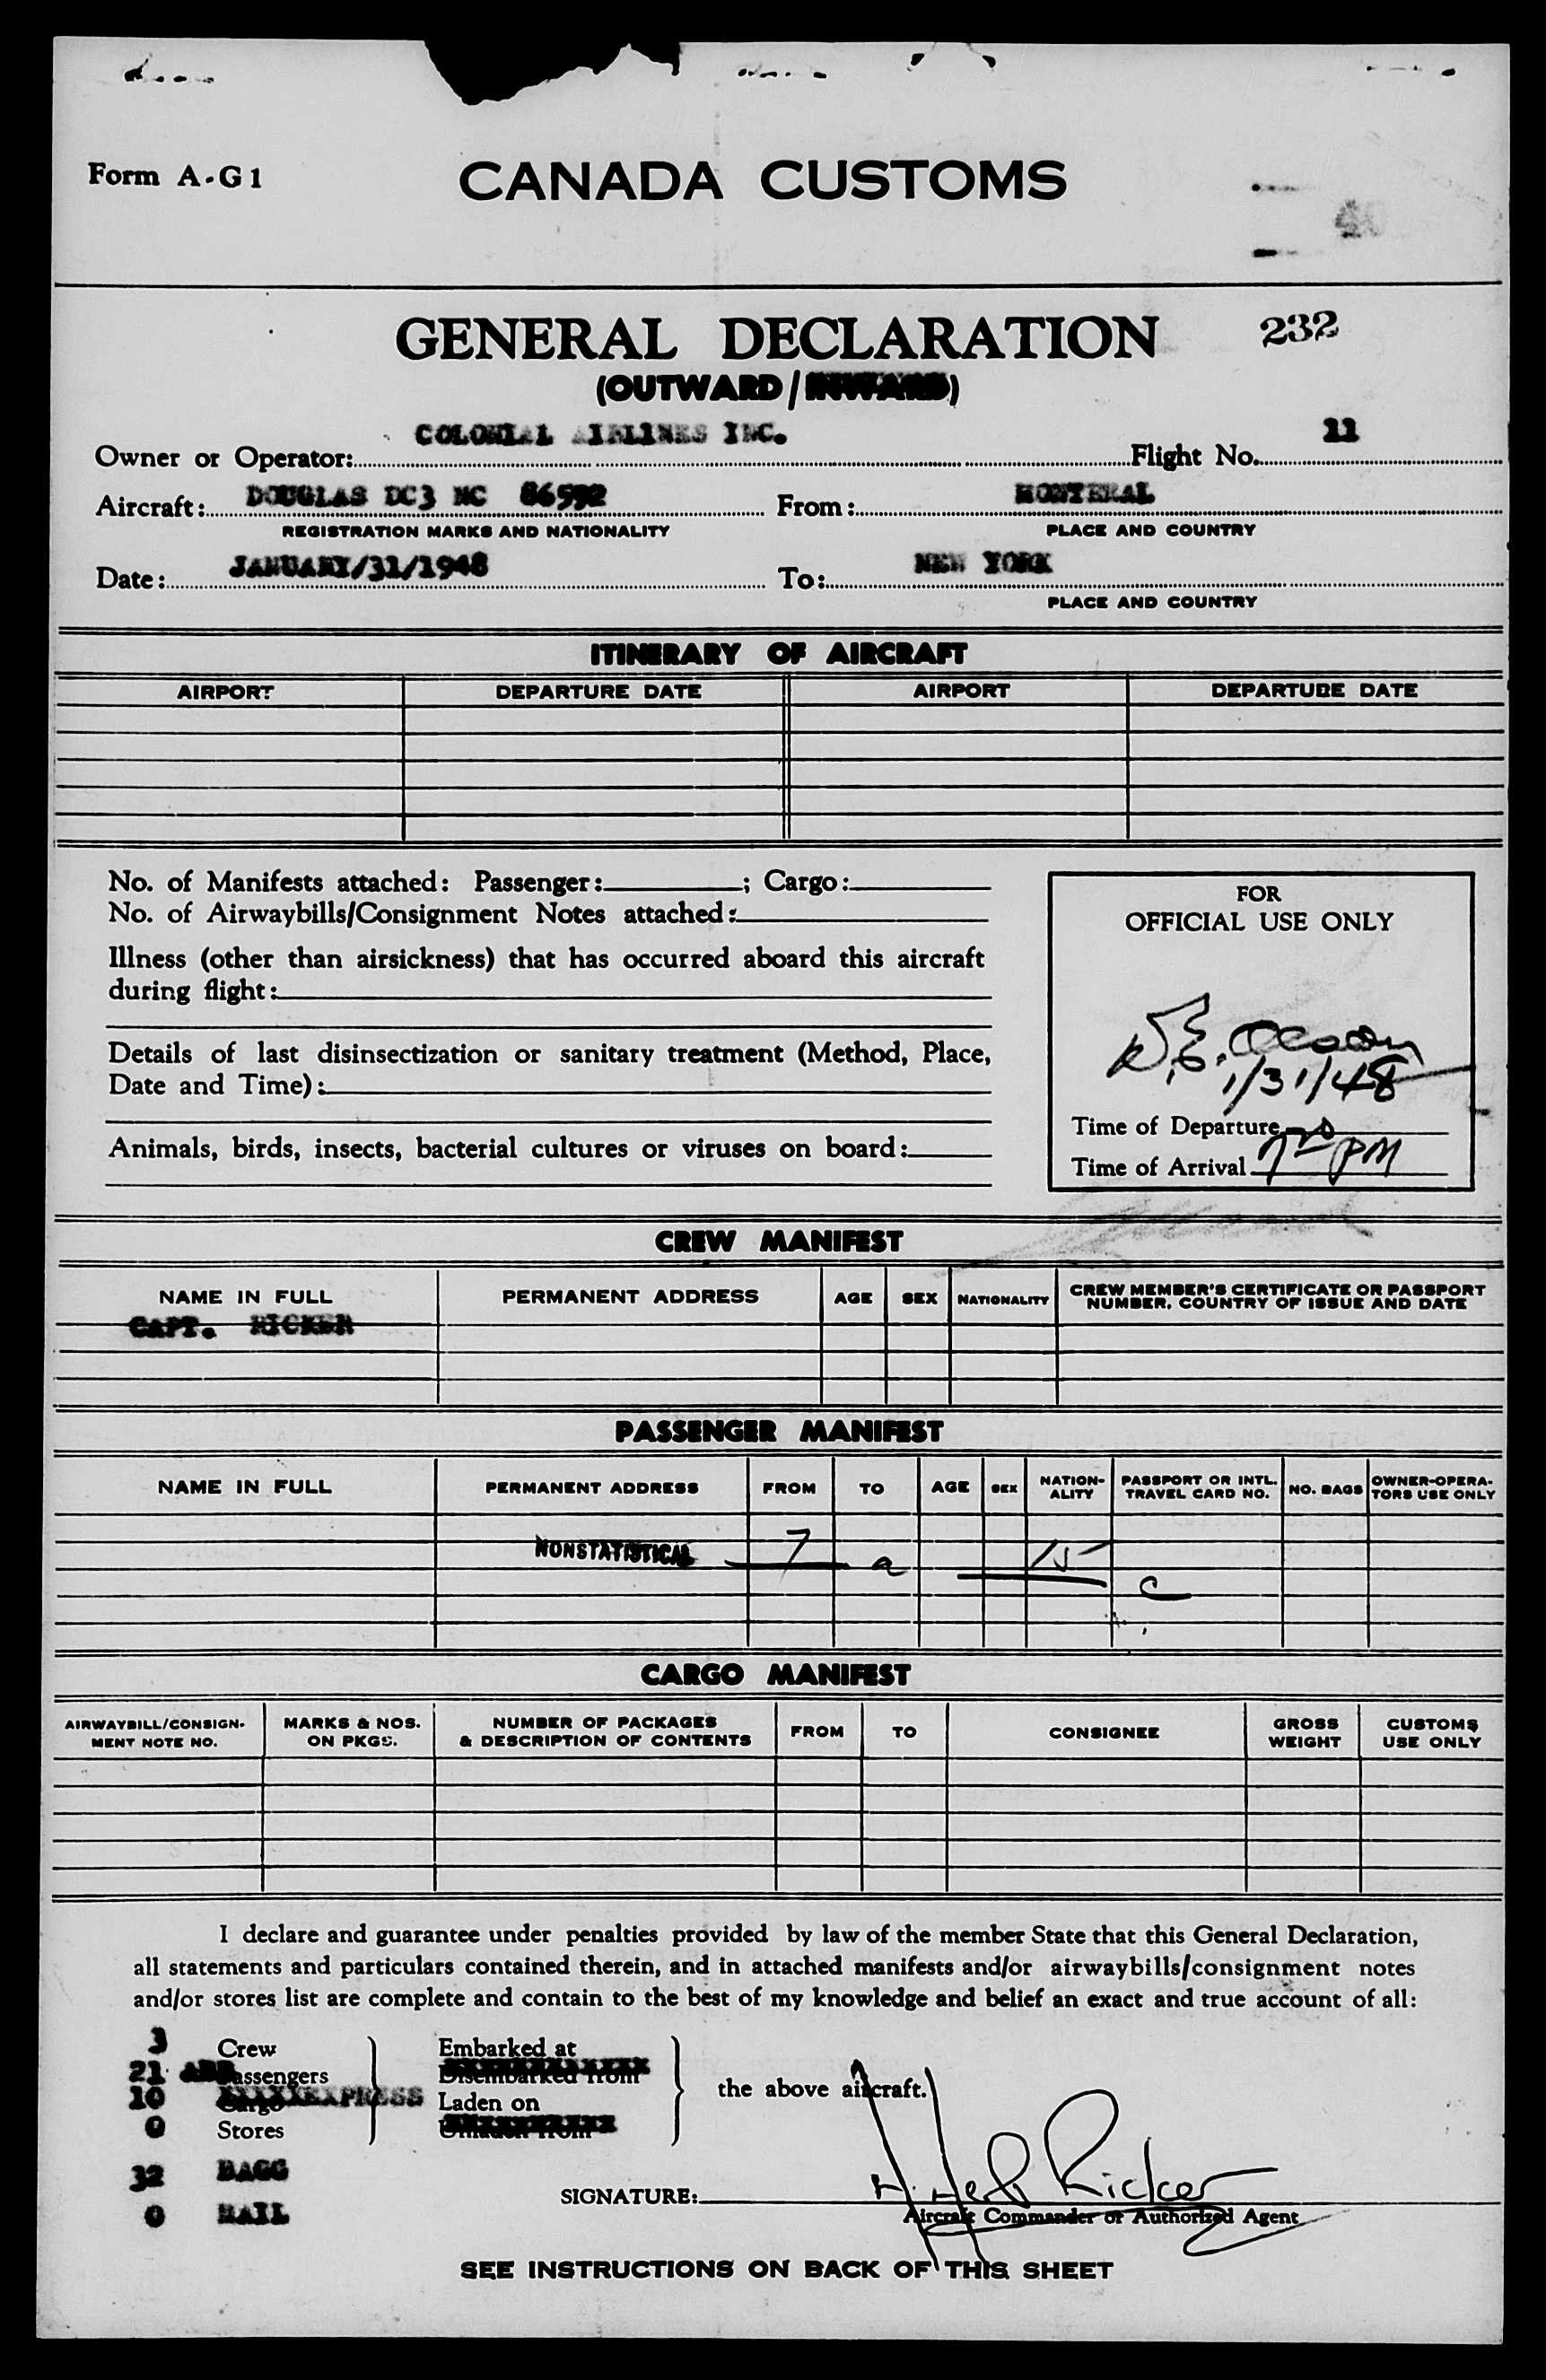 Form A-G1
CANADA CUSTOMS
GENERAL DECLARATION
232
(OUTWARD/INWARD)
COLONIAL AIRLINES INC.
11
Owner or Operator: Flight No.
Aircraft: DOUGLAS DC3 NC 86592 From: MONTERAL
REGISTRATION MARKS AND NATIONALITY PLACE AND COUNTRY
Date: JANUARY/31/1948 To: NEW YORK
PLACE AND COUNTRY
ITINERARY OF AIRCRAFT
AIRPORT DEPARTURE DATE AIRPORT DEPARTURE DATE
No. of Manifests attached: Passenger: ; Cargo:
No. of Airwaybills/Consignment Notes attached:
Illness (other than airsickness) that has occurred aboard this aircraft
during flight:
Details of last disinsectization or sanitary treatment (Method, Place,
Date and Time):
Animals, birds, insects, bacterial cultures or viruses on board:
FOR
OFFICIAL USE ONLY
1/31/48
Time of Departure
Time of Arrival 7 20 PM
CREW MANIFEST
NAME IN FULL PERMANENT ADDRESS AGE SEX NATIONALITY CREW MEMBER'S CERTIFICATE OR PASSPORT
NUMBER, COUNTRY OF ISSUE AND DATE
CAPT. RICKER
PASSENGER MANIFEST
NAME IN FULL PERMANENT ADDRESS FROM TO AGE SEX NATION-
ALITY PASSPORT OR INTL.
TRAVEL CARD NO. NO. BAGS OWNER-OPERA-
TORS USE ONLY
NONSTATISTICAL 7 a 15 c
CARGO MANIFEST
AIRWAYBILL/CONSIGN-
MENT NOTE NO. MARKS & NOS.
ON PKGS. NUMBER OF PACKAGES
& DESCRIPTION OF CONTENTS FROM TO CONSIGNEE GROSS
WEIGHT CUSTOMS
USE ONLY
I declare and guarantee under penalties provided by law of the member State that this General Declaration,
all statements and particulars contained therein, and in attached manifests and/or airwaybills/consignment notes
and/or stores list are complete and contain to the best of my knowledge and belief an exact and true account of all:
3 Crew Embarked at
21 Passengers Disembarked from
the above aircraft.
10 Cargo EXPRESS Laden on
0 Stores Unladen from
32 BAGG
0 MAIL
SIGNATURE: Ricker
Aircraft Commander or Authorized Agent
SEE INSTRUCTIONS ON BACK OF THIS SHEET